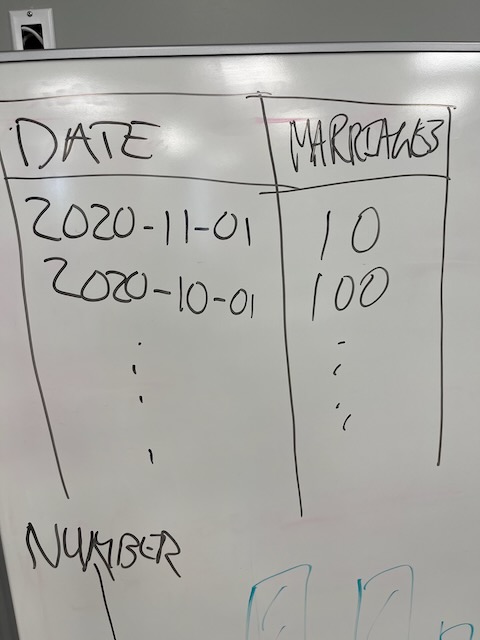 DATE MARRIAGES
2020-11-01 10
2020-10-01 100
NUMBER